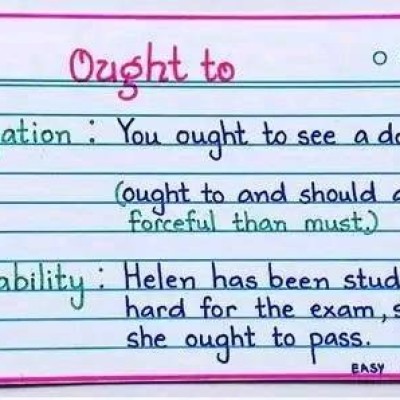 Ought to
ation : You ought to see a do
(ought to and should a
forceful than must.)
ability : Helen has been stud
hard for the exam, s
she ought to pass.
EASY